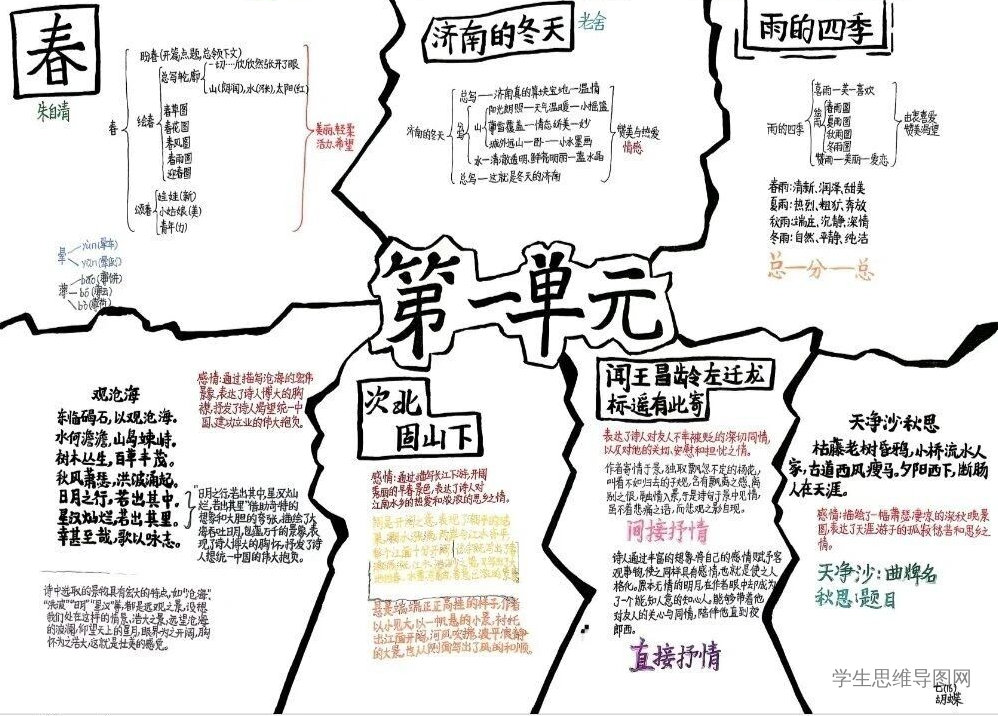 春
朱自清
盼春(开篇点题,总领下文)
总写轮廓
一切…欣欣然张开了眼
山(朗润),水(涨),太阳(红)
春
绘春
春草图
春花图
春风图
春雨图
迎春图
颂春
娃娃(新)
小姑娘(美)
青年(力)
美丽、轻柔
活力、希望
晕
yùn
yūn
薄
báo(薄饼)
bó
bò(薄荷)
济南的冬天
老舍
济南的冬天
总写——济南真的算块宝地—温情
阳光朗照—天气温暖—小摇篮
山
薄雪覆盖—情态娇美—妙
城外远山—卧—小水墨画
水—清澈透明,鲜亮明丽—蓝水晶
总写—这就是冬天的济南
赞美与热爱
情感
雨的四季
雨的四季
喜雨—美—喜欢
绘雨
春雨图
夏雨图
秋雨图
冬雨图
赞雨—美丽—爱恋
由衷喜爱
赞美渴望
春雨:清新、润泽、甜美
夏雨:热烈、粗犷、奔放
秋雨:端庄、沉静、深情
冬雨:自然、平静、纯洁
总—分—总
第一单元
观沧海
东临碣石,以观沧海。
水何澹澹,山岛竦峙。
树木丛生,百草丰茂。
秋风萧瑟,洪波涌起。
日月之行,若出其中。
星汉灿烂,若出其里。
幸甚至哉,歌以咏志。
感情:通过描写沧海的宏伟
景象,表达了诗人博大的胸
襟,抒发了诗人渴望统一中
国、建功立业的伟大抱负。
"日月之行,若出其中,星汉灿
烂,若出其里"借助奇特的
想象和大胆的夸张,描绘了大
海吞吐日月,包蕴万千的景象,表
现了诗人博大的胸怀,抒发了诗
人想统一中国的伟大抱负。
诗中选取的景物具有宏大的特点,如"沧海"
"洪波""日月""星汉"等,都是远观之景,设想
我们处在这样的情景,浩大之景,远望沧海
的波澜,仰望天上的星月,眼界为之开阔,胸
怀为之浩大,这就是壮美的感觉。
次北
固山下
感情:通过描写长江下游,开阔
秀丽的早春景色,表达了诗人对
江南水乡的热爱和浓浓的思乡之情。
悬是端端正正高挂的样子,作者
以小见大,以一帆悬的小景,衬托
出江面开阔,河风吹拂,波平浪静
的大景。也从侧面写出了风的和顺。
闻王昌龄左迁龙
标遥有此寄
表达了诗人对友人不幸被贬的深切同情,
以及对他的关切、安慰和担忧之情。
作者寄情于景,独取飘忽不定的杨花,
叫着不如归去的子规,含有飘零之感、离
别之恨,融情入景,于是诗句于景中见情,
虽不着悲痛之语,而悲痛之意自现。
间接抒情
诗人通过丰富的想象,将自己的感情赋予客
观事物,使之同样具有感情,也就是使之人
格化。原本无情的明月,在作者眼中却成为
了一个能知人意的知心人,能够带着他
对友人的关心与同情,陪伴他直到夜
郎西。
直接抒情
天净沙·秋思
枯藤老树昏鸦,小桥流水人
家,古道西风瘦马。夕阳西下,断肠
人在天涯。
感情:描绘了一幅萧瑟凄凉的深秋晚景
图,表达了天涯游子的孤寂惊苦和思乡之
情。
天净沙:曲牌名
秋思:题目
学生思维导图网
胡蝶